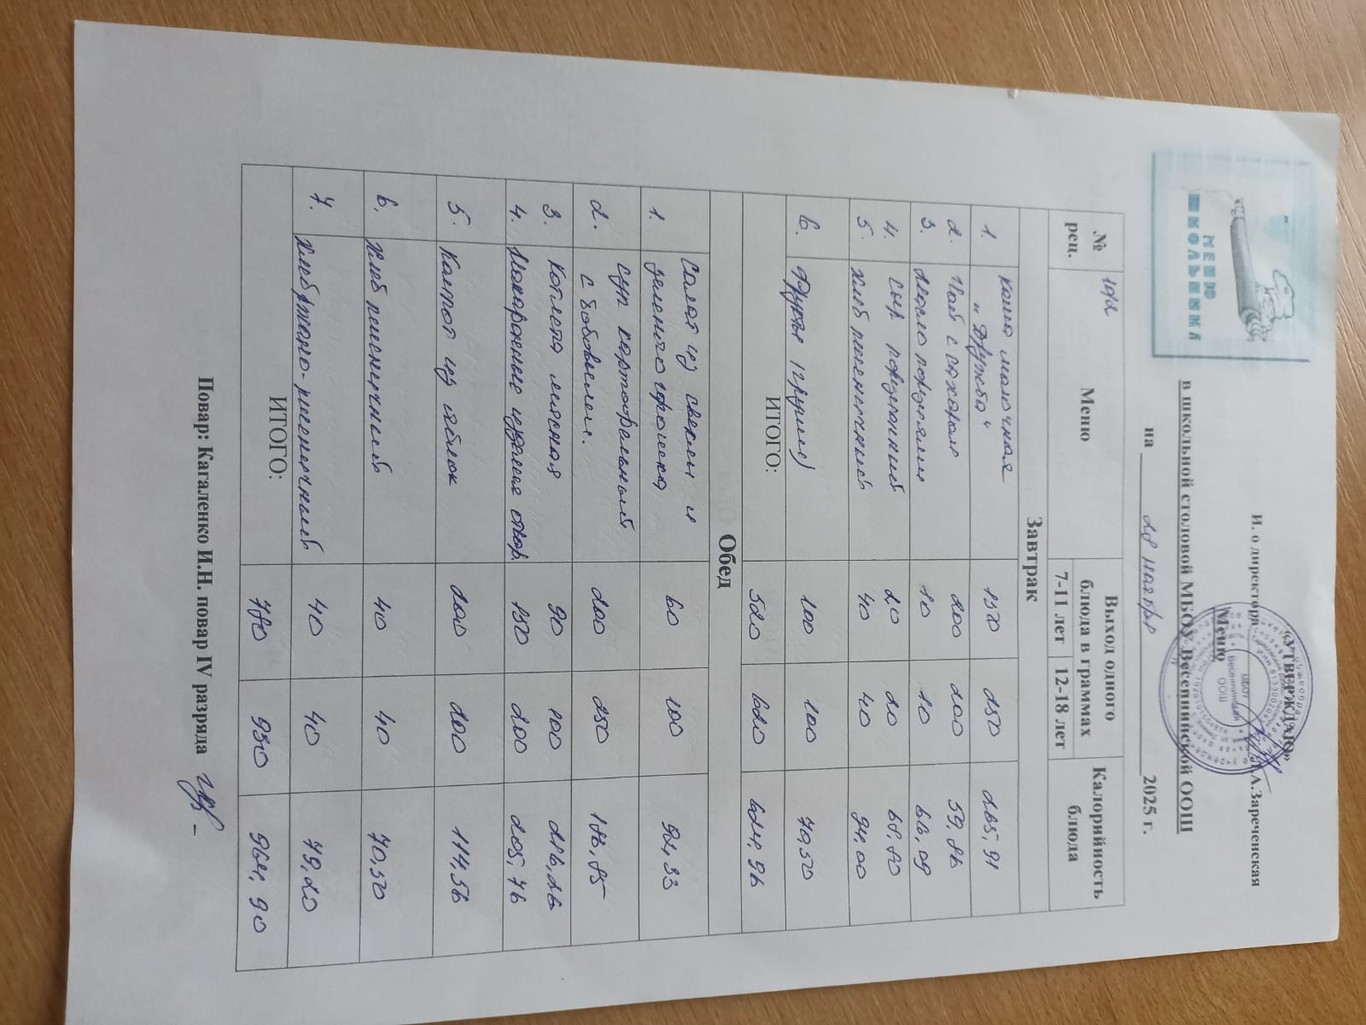 МЕНЮ
ШКОЛЬНИКА
«УТВЕРЖДАЮ»
И. о директора Л.А.Зареченская
Меню
в школьной столовой МБОУ Весеннинской ООШ
на 28 ноября 2025 г.
№ рец. Меню Выход одного блюда в граммах Калорийность блюда
7-11 лет 12-18 лет
Завтрак
1. Каша молочная
"Дружба" 150 250 265,91
2. Чай с сахаром 200 200 59,86
3. Масло порциями 10 10 66,09
4. Сыр порционный 20 20 68,80
5. Хлеб пшеничный 40 40 94,00
6. Фрукты (груши) 100 100 70,50
ИТОГО: 520 620 624,96
Обед
1. Салат из свеклы и
зеленого горошка 60 100 92,33
2. Суп картофельный
с бобовыми. 200 250 186,85
3. Котлета мясная 90 100 216,26
4. Макаронные изделия отвар. 150 200 205,76
5. Компот из яблок 200 200 114,56
6. Хлеб пшеничный 40 40 70,50
7. Хлеб ржано-пшеничный 40 40 79,20
ИТОГО: 780 930 964,90
Повар: Кагаленко И.Н. повар IV разряда